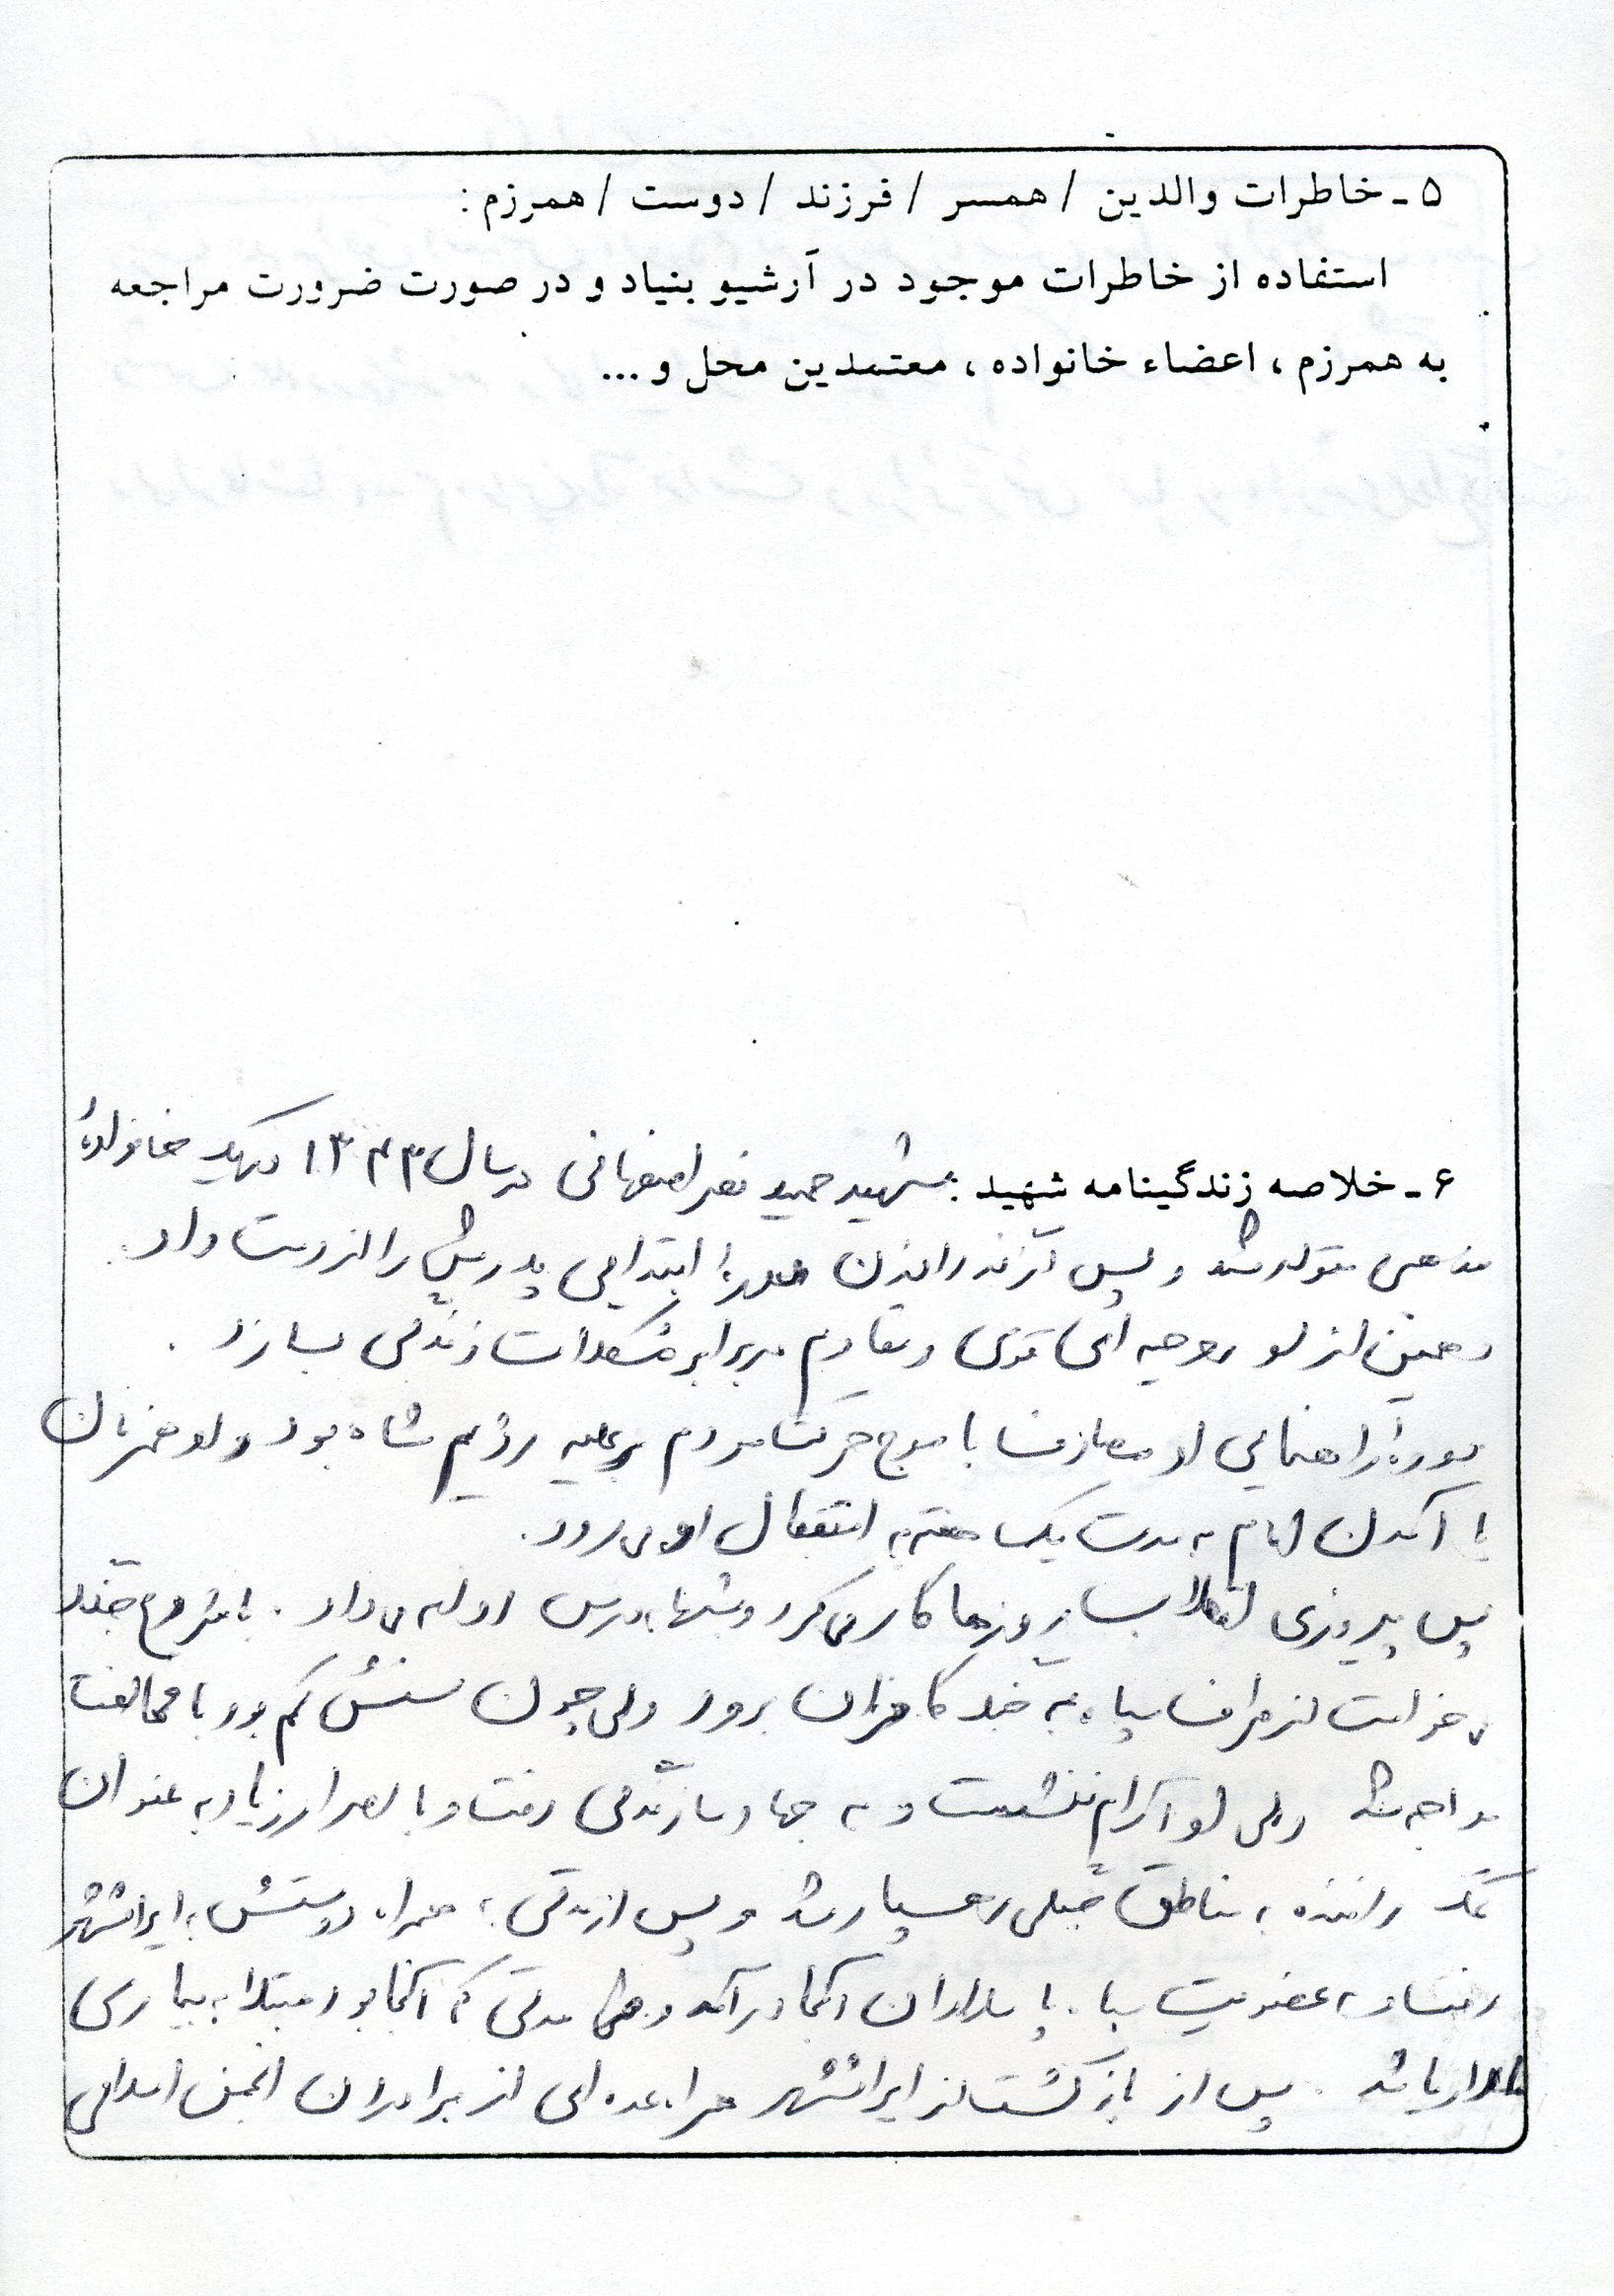 ۵ ـ خاطرات والدین / همسر / فرزند / دوست / همرزم :
استفاده از خاطرات موجود در آرشیو بنیاد و در صورت ضرورت مراجعه
به همرزم ، اعضاء خانواده ، معتمدین محل و ...
۶ ـ خلاصه زندگینامه شهید : شهید حمید نصر اصفهانی در سال ۱۳۴۳ در یک خانوادهٔ
مذهبی متولد شد و پس از گذراندن دورهٔ ابتدایی پدرش را از دست داد.
و همین از او روحیه ای قوی و مقاوم در برابر مشکلات زندگی بسازد .
دورهٔ راهنمایی او مصادف با موج حرکت مردم بر علیه رژیم شاه بود و او همزمان
با آمدن امام به مدت یک هفته به استقبال او می رود.
پس پیروزی انقلاب روزها کار می کرد و شبها به درس ادامه می داد . با شروع جنگ
می خواست از طرف سپاه به جنگ کافران برود ولی چون سنش کم بود با مخالفت
مواجه شد ولی او آرام ننشست و به جهاد سازندگی رفت و با اصرار زیاد به عنوان
کمک راننده به مناطق جنگی رهسپار شد و پس از مدتی به همراه دوستش به ایرانشهر
رفت و به عضویت سپاه پاسداران آنجا درآمد و طی مدتی که آنجا بود مبتلا به بیماری
مالاریا شد . پس از بازگشت از ایرانشهر همراه عده ای از برادران انجمن اسلامی